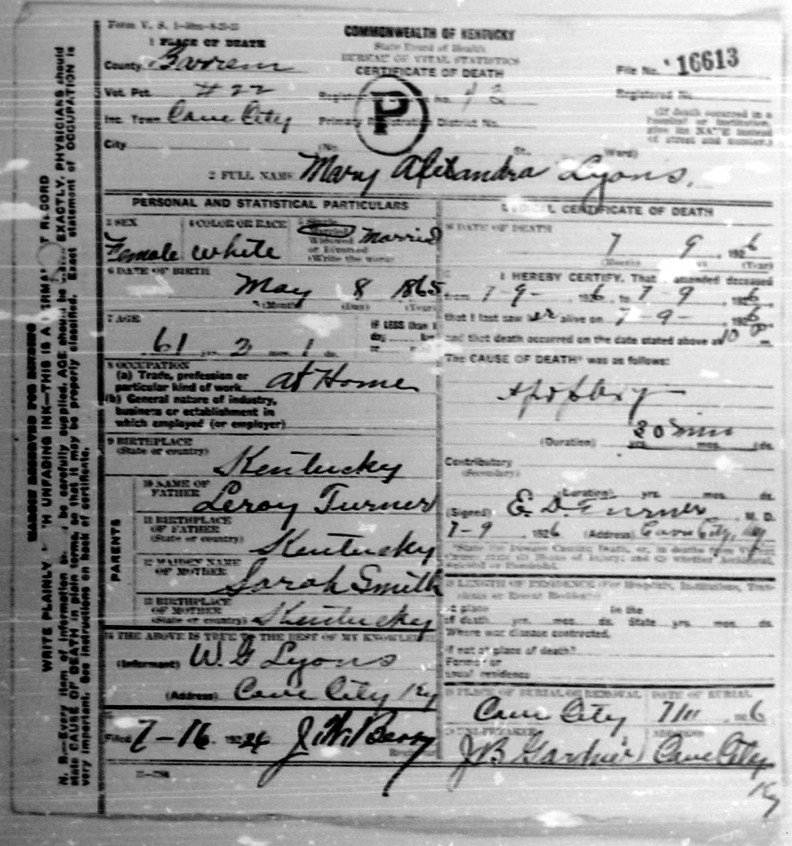 Form V. S.
COMMONWEALTH OF KENTUCKY
State Board of Health
BUREAU OF VITAL STATISTICS
CERTIFICATE OF DEATH
1 PLACE OF DEATH
County
Vot. Pct. #22
Inc. Town Cave City
City
File No. 16613
Registered No.
Primary Registration District No.
P
(No. St. Ward)
(If death occurred in a
hospital or institution,
give its NAME instead
of street and number.)
2 FULL NAME Mary Alexandra Lyons.
PERSONAL AND STATISTICAL PARTICULARS
3 SEX
Female
4 COLOR OR RACE
White
5 Single
Married
Widowed
or Divorced
(Write the word)
Married
6 DATE OF BIRTH
May 8 1865
(Month) (Day) (Year)
7 AGE
61 yrs. 2 mos. 1 ds.
IF LESS than 1
day
8 OCCUPATION
(a) Trade, profession or
particular kind of work At Home
(b) General nature of industry,
business or establishment in
which employed (or employer)
9 BIRTHPLACE
(State or country)
Kentucky
PARENTS
10 NAME OF
FATHER
Leroy Turner
11 BIRTHPLACE
OF FATHER
(State or country) Kentucky
12 MAIDEN NAME
OF MOTHER
Sarah Smith
13 BIRTHPLACE
OF MOTHER
(State or country) Kentucky
14 THE ABOVE IS TRUE TO THE BEST OF MY KNOWLEDGE
(Informant) W. G Lyons
(Address) Cave City Ky
15
Filed 7-16 192 J. W. Berry
MEDICAL CERTIFICATE OF DEATH
16 DATE OF DEATH
7 9 1926
(Month) (Year)
17 I HEREBY CERTIFY, That I attended deceased
from 7-9- 1926, to 7-9 1926
that I last saw her alive on 7-9- 1926
and that death occurred on the date stated above at 10
The CAUSE OF DEATH* was as follows:
30 min
(Duration) yrs. mos. ds.
Contributory
(Secondary)
(Duration) yrs. mos. ds.
(Signed) E. D. Turner M. D.
7-9 1926 (Address) Cave City, Ky
*State the Disease Causing Death, or, in deaths from Violent
Causes, state (1) Means of Injury; and (2) whether Accidental,
Suicidal or Homicidal.
18 LENGTH OF RESIDENCE (For Hospitals, Institutions, Transients
or Recent Residents)
At place In the
of death yrs. mos. ds. State yrs. mos. ds.
Where was disease contracted,
if not at place of death?
Former or
usual residence
19 PLACE OF BURIAL OR REMOVAL
Cave City
DATE OF BURIAL
7/11 1926
20 UNDERTAKER
J B Gardner
ADDRESS
Cave City
Ky
MARGIN RESERVED FOR BINDING
WRITE PLAINLY WITH UNFADING INK—THIS IS A PERMANENT RECORD
N. B.—Every item of information should be carefully supplied. AGE should be stated EXACTLY. PHYSICIANS should
state CAUSE OF DEATH in plain terms, so that it may be properly classified. Exact statement of OCCUPATION is
very important. See instructions on back of certificate.